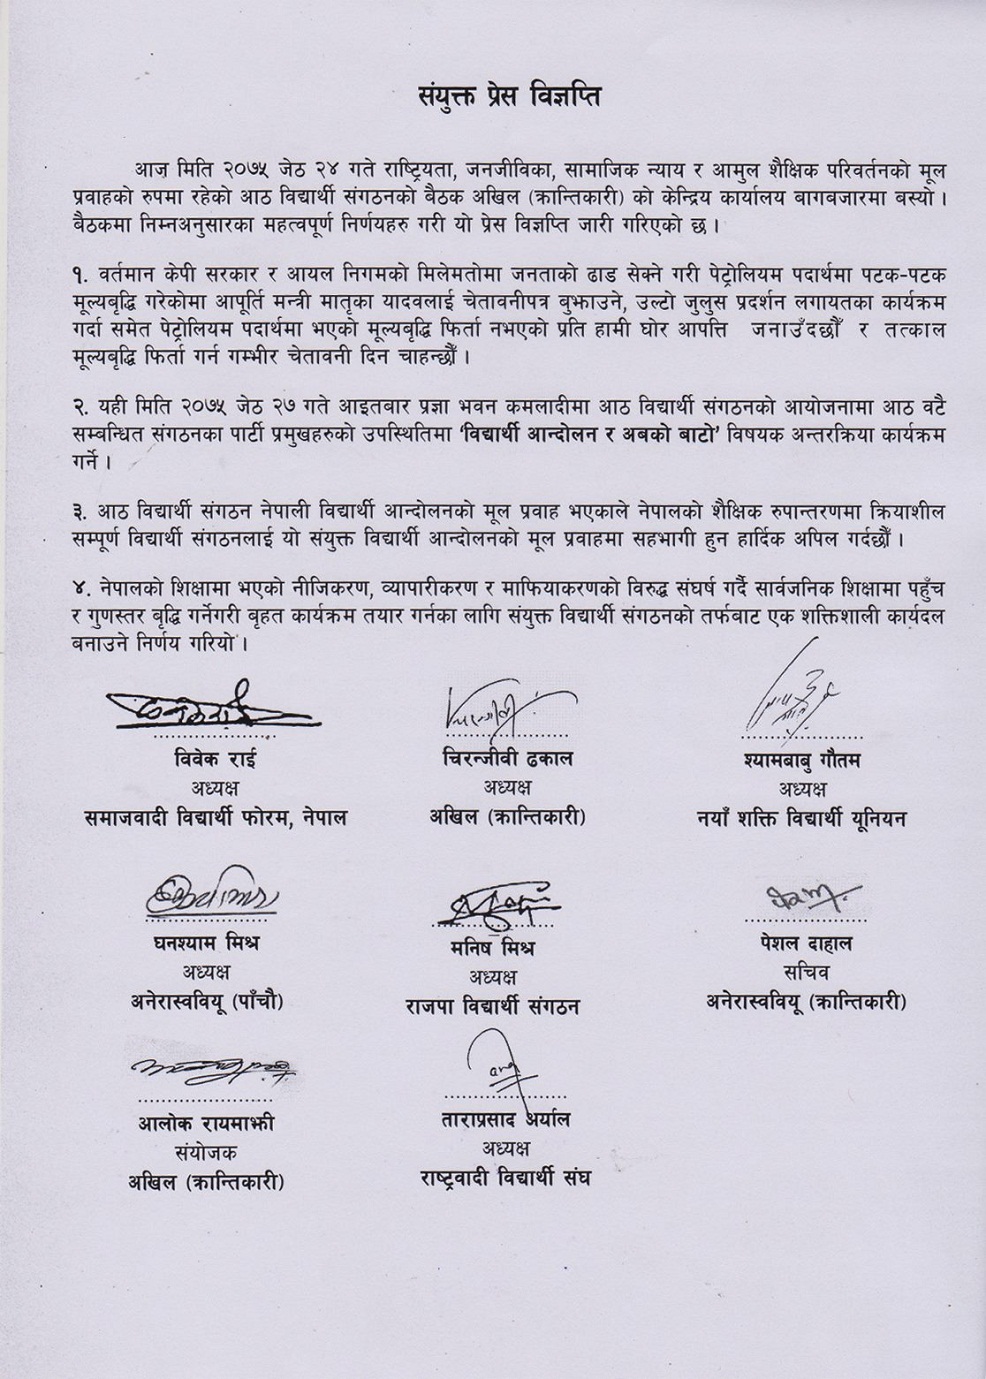 संयुक्त प्रेस विज्ञप्ति
आज मिति २०७५ जेठ २४ गते राष्ट्रियता, जनजीविका, सामाजिक न्याय र आमुल शैक्षिक परिवर्तनको मूल
प्रवाहको रुपमा रहेको आठ विद्यार्थी संगठनको बैठक अखिल (क्रान्तिकारी) को केन्द्रिय कार्यालय बागबजारमा बस्यो ।
बैठकमा निम्नअनुसारका महत्वपूर्ण निर्णयहरु गरी यो प्रेस विज्ञप्ति जारी गरिएको छ ।
१. वर्तमान केपी सरकार र आयल निगमको मिलेमतोमा जनताको ढाड सेक्ने गरी पेट्रोलियम पदार्थमा पटक-पटक
मूल्यबृद्धि गरेकोमा आपूर्ति मन्त्री मातृका यादवलाई चेतावनीपत्र बुझाउने, उल्टो जुलुस प्रदर्शन लगायतका कार्यक्रम
गर्दा समेत पेट्रोलियम पदार्थमा भएको मूल्यबृद्धि फिर्ता नभएको प्रति हामी घोर आपत्ति जनाउँदछौँ र तत्काल
मूल्यबृद्धि फिर्ता गर्न गम्भीर चेतावनी दिन चाहन्छौँ ।
२. यही मिति २०७५ जेठ २७ गते आइतबार प्रज्ञा भवन कमलादीमा आठ विद्यार्थी संगठनको आयोजनामा आठ वटै
सम्बन्धित संगठनका पार्टी प्रमुखहरुको उपस्थितिमा ‘विद्यार्थी आन्दोलन र अबको बाटो’ विषयक अन्तरक्रिया कार्यक्रम
गर्ने ।
३. आठ विद्यार्थी संगठन नेपाली विद्यार्थी आन्दोलनको मूल प्रवाह भएकाले नेपालको शैक्षिक रुपान्तरणमा क्रियाशील
सम्पूर्ण विद्यार्थी संगठनलाई यो संयुक्त विद्यार्थी आन्दोलनको मूल प्रवाहमा सहभागी हुन हार्दिक अपिल गर्दछौँ ।
४. नेपालको शिक्षामा भएको नीजिकरण, व्यापारीकरण र माफियाकरणको विरुद्ध संघर्ष गर्दै सार्वजनिक शिक्षामा पहुँच
र गुणस्तर बृद्धि गर्नेगरी बृहत कार्यक्रम तयार गर्नका लागि संयुक्त विद्यार्थी संगठनको तर्फबाट एक शक्तिशाली कार्यदल
बनाउने निर्णय गरियो ।
विवेक राई
अध्यक्ष
समाजवादी विद्यार्थी फोरम, नेपाल
चिरन्जीवी ढकाल
अध्यक्ष
अखिल (क्रान्तिकारी)
श्यामबाबु गौतम
अध्यक्ष
नयाँ शक्ति विद्यार्थी यूनियन
घनश्याम मिश्र
अध्यक्ष
अनेरास्ववियू (पाँचौ)
मनिष मिश्र
अध्यक्ष
राजपा विद्यार्थी संगठन
पेशल दाहाल
सचिव
अनेरास्ववियू (क्रान्तिकारी)
आलोक रायमाझी
संयोजक
अखिल (क्रान्तिकारी)
ताराप्रसाद अर्याल
अध्यक्ष
राष्ट्रवादी विद्यार्थी संघ